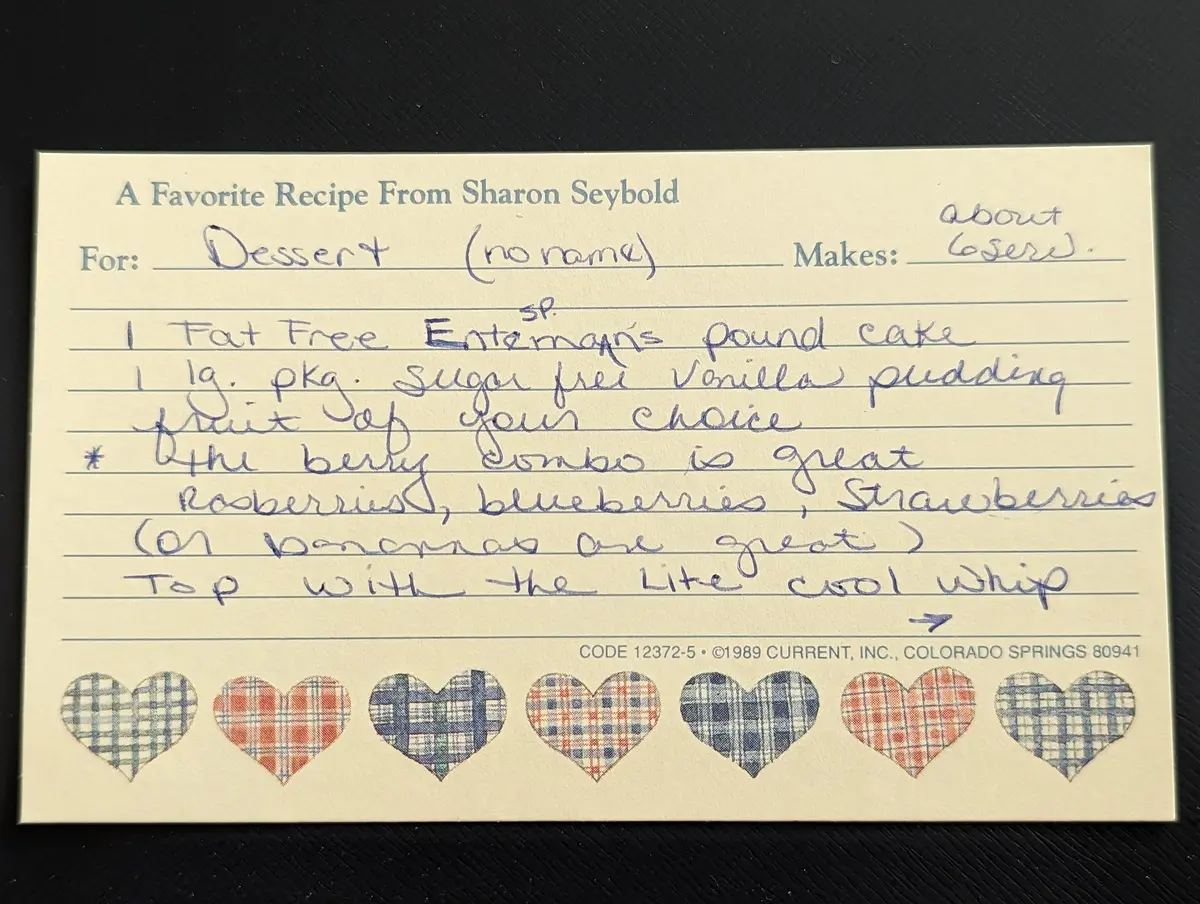 A Favorite Recipe From Sharon Seybold
about
For: Dessert (no name) Makes: 6 serv.
sp.
1 Fat Free Entemann's pound cake
1 lg. pkg. sugar free vanilla pudding
fruit of your choice
* the berry combo is great
Rasberries, blueberries, Strawberries
(or bananas are great)
Top with the Lite cool whip
→
CODE 12372-5 • ©1989 CURRENT, INC., COLORADO SPRINGS 80941